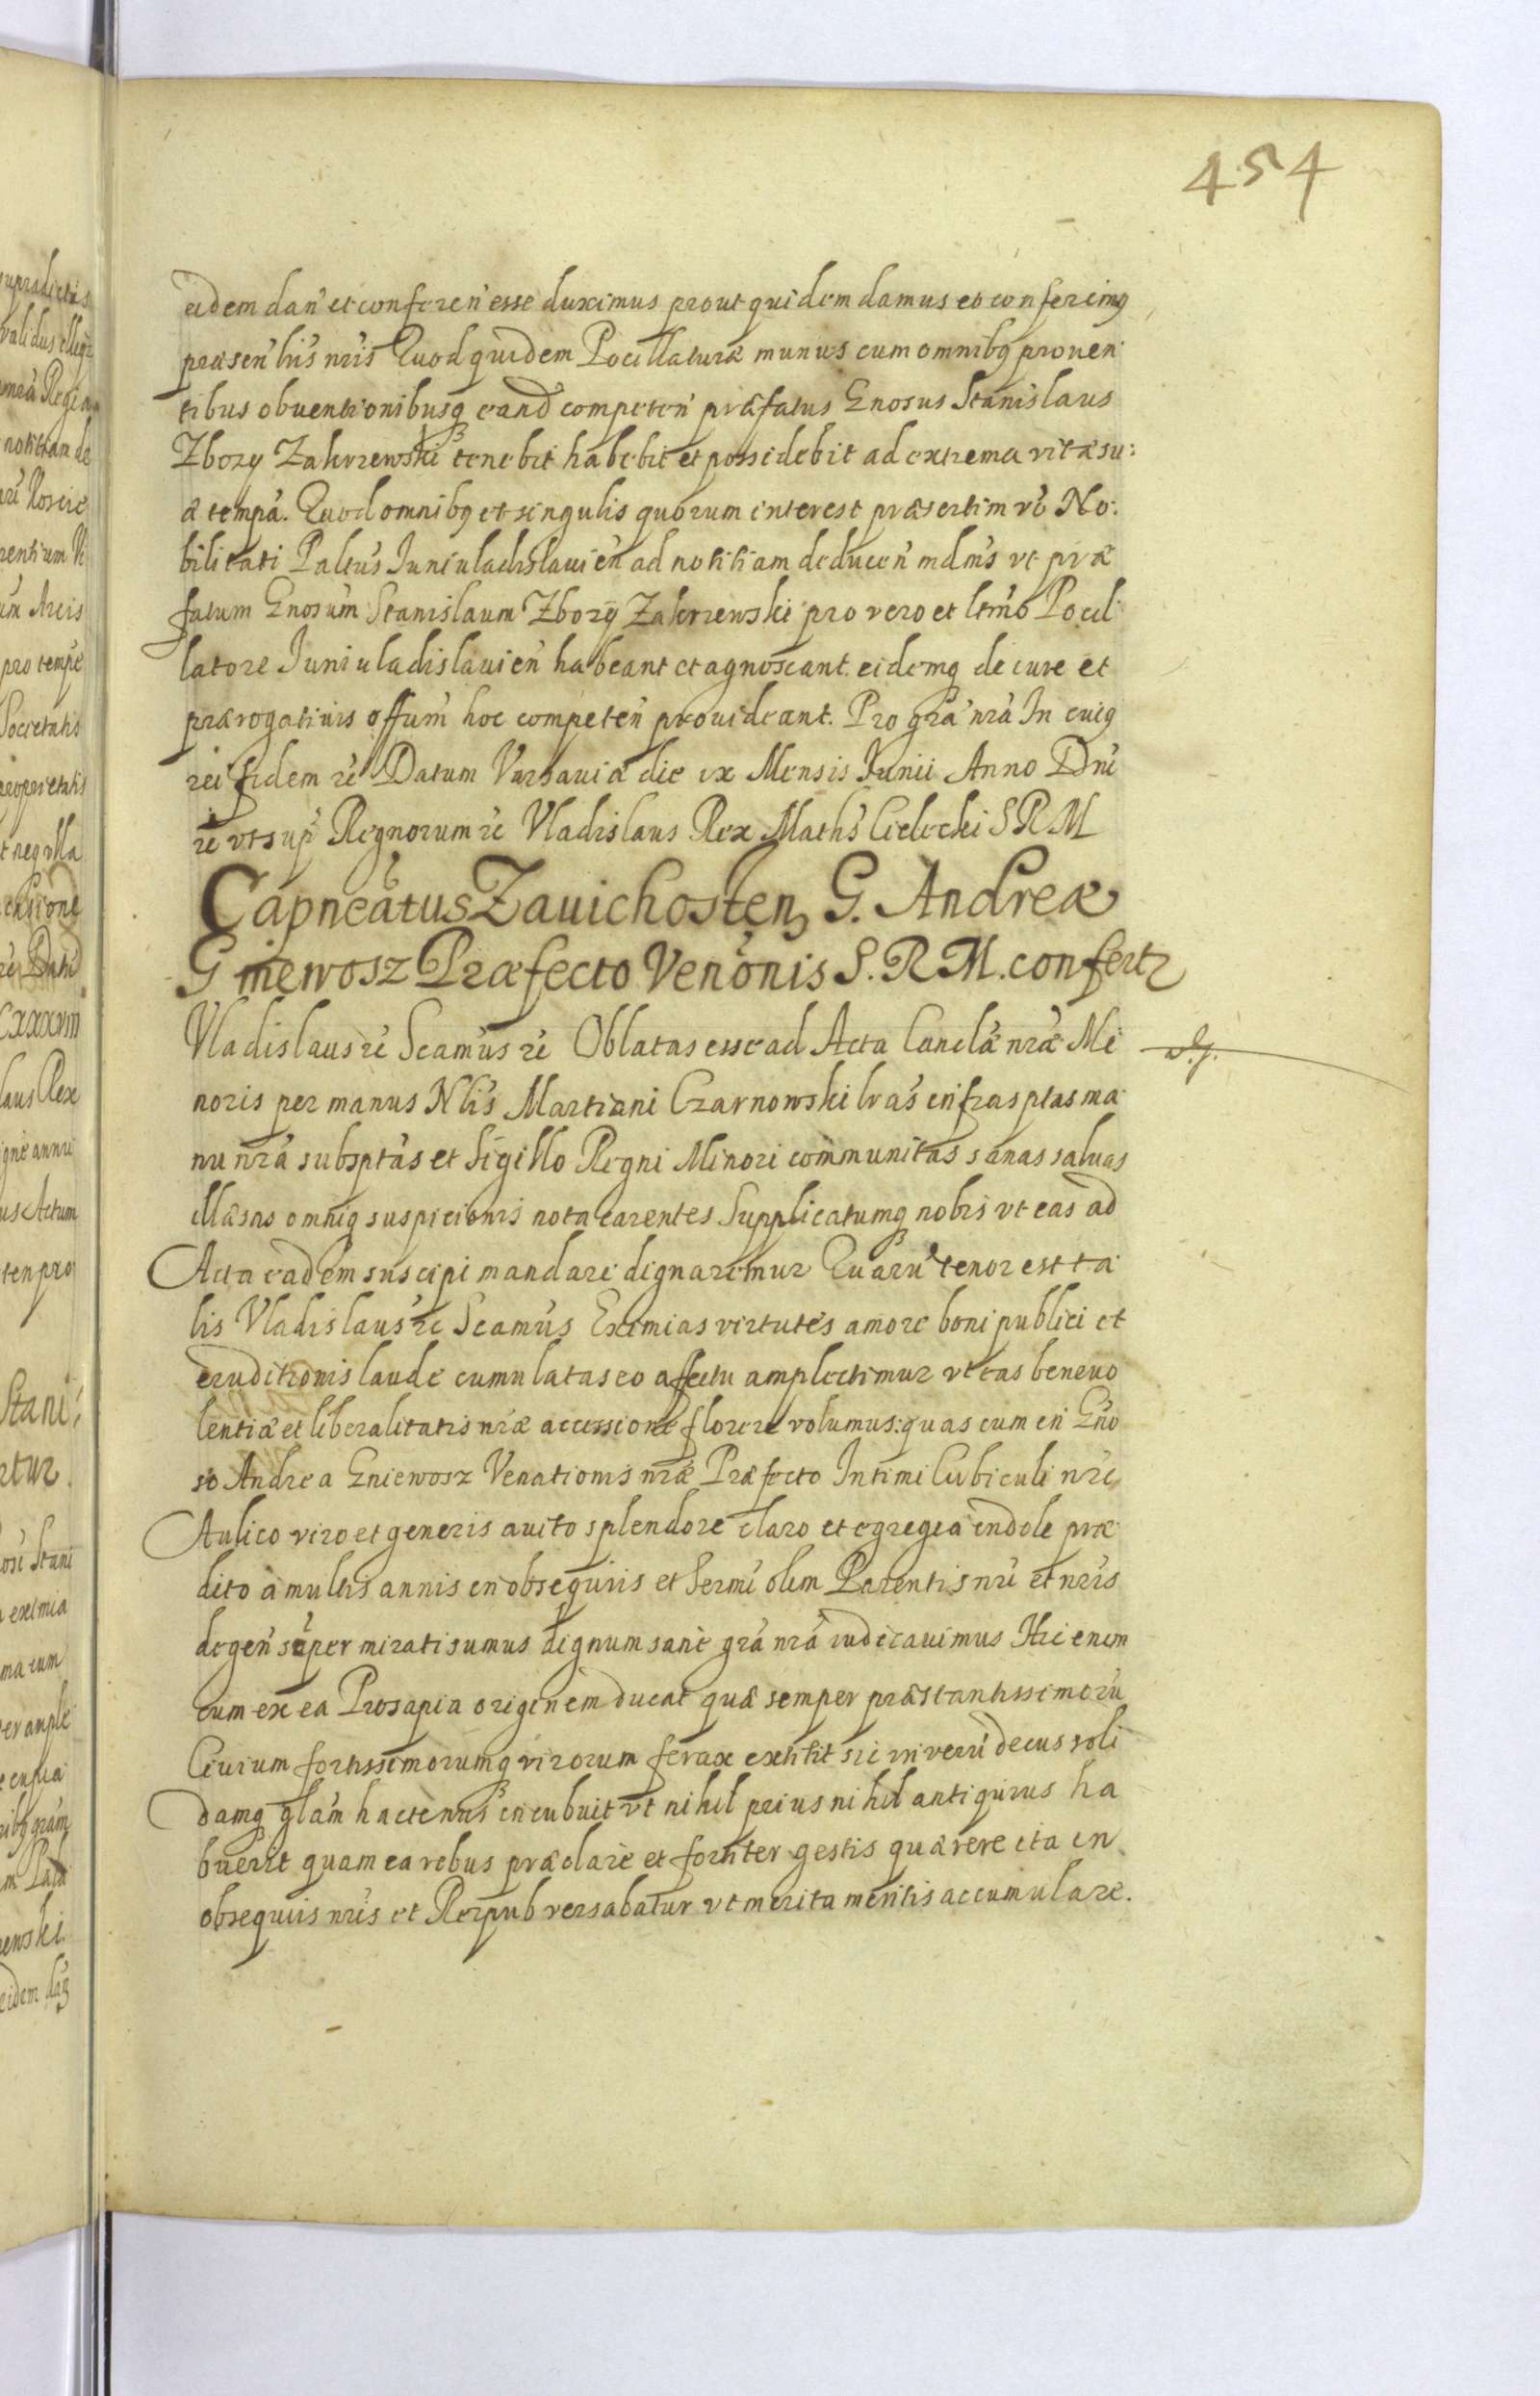 454
eidem dan̄ et conferen̄ esse duximus prout quidem damus et conferimq
præsen̄ bus nr̄is Quod quidem Pocillaturæ munus cum omnibq proven
tibus obventionibusq eand competen̄ præfatus Gnosus Stanislaus
Zbozy Zakrzewski tenebit habebit et possidebit ad extrema vitæ su:
æ tempā. Quod omnibq et singulis quorum interest præsertim vō No:
bilitati Paltūs Iuniuladislauien̄ ad notitiam deducen̄ mdm̄s ut præ
fatum Gnosūm Stanislaum Zbozÿ Zakrzewski pro vero et ltm̄o Pocil
latore Iuniuladislauien̄ habeant et agnoscant. eidemq de iure et
prærogativis offum̄ hoc competen̄ provideant. Pro grā nrā In cuiq
rei fidem rc̄ Datum Varsauiæ die ix Mensis Junii Anno Dni
rc̄ ut sup̄ Regnorum rc̄ Vladislaus Rex Math̄s Cielecki S R M
Capneātus Zauichosten, G. Andreæ
Gniewosz Præfecto Venōnis S. R M. confertr
Vladislaus rc̄ Scam̄us rc̄ Oblatas esse ad Acta Canclæ nræ Mi
noris per manus Nlīs Martiani Czarnowski lrās infrasptas ma
nu nr̄a subsptās et Sigillo Regni Minori com̄munitas sanas salvas
illæsas omniq suspicionis nota carentes Supplicatumq nobis ut eas ad
Acta eadem suscipi mandare dignaremur Quarū tenor est ta
lis Vladislaus rc̄ Scamūs Eximias virtutes amore boni publici et
eruditionis laude cumulatas eo affectu amplectimur ut eas benevo
lentiæ et liberalitatis nr̄æ accessione florere volumus: quas cum in Gno
so Andrea Gniewosz Venationis nr̄æ Præfecto Intimi Cubiculi nr̄i
Aulico viro et generis avito splendore claro et egregia indole præ
dito a multis annis in obsequiis et Sermī olim Parentis nr̄i et nr̄is
degen̄ sēper mirati sumus dignum sanè grā nrā iudicauimus Hic enim
cum ex ea Prosapia originem ducat quæ semper præstantissimorū
Civium fortissimorumq virorum ferax extitit sic in verū decus soli
damq glam̄ hactenus incubuit ut nihil prius nihil antiquius ha
buerit quam ea rebus præclarè et fortiter gestis quærere ita in
obsequiis nr̄is et Reipub versabatur ut merita meritis accumulare.